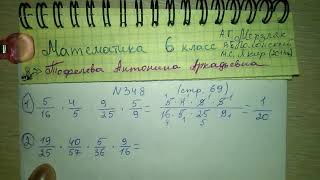 Математика 6 класс
А.Г. Мерзляк
В.Б. Полонский
М.С. Якир (2014г.)
Тофелева Антонина Аркадьевна
№348 (стр. 69)
1) 5/16 · 4/5 · 9/25 · 5/9 = 5·4·9·5 / 16·5·25·9 = 1/20
2) 19/25 · 40/57 · 5/36 · 9/16 =